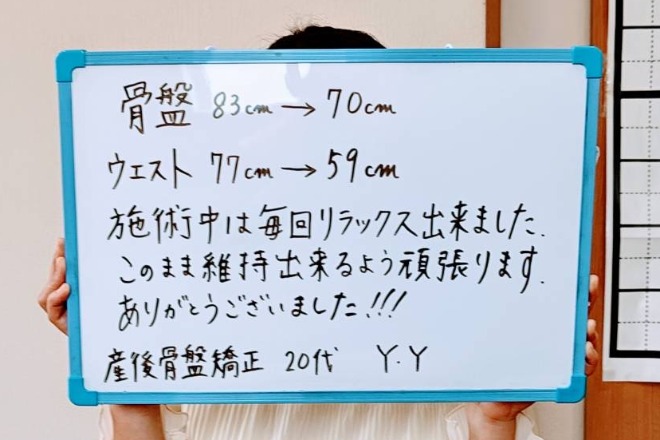 骨盤 83cm→70cm
ウエスト 77cm→59cm
施術中は毎回リラックス出来ました.
このまま維持出来るよう頑張ります.
ありがとうございました!!!
産後骨盤矯正 20代 Y.Y